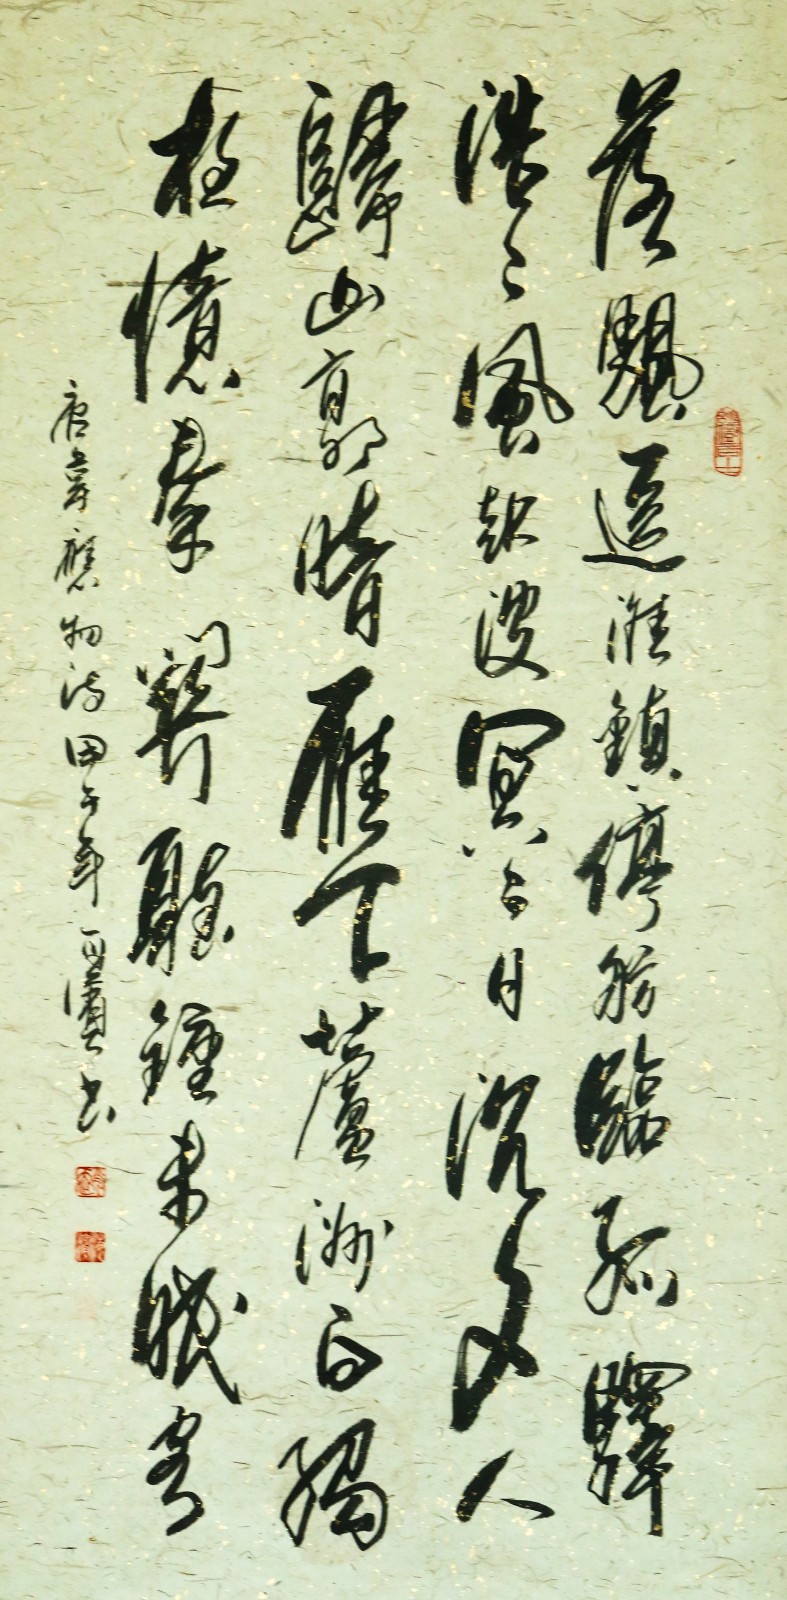 落颿逗淮鎮停舫臨孤驛
浩〻風起波冥〻日沉夕人
歸山郭暗雁下蘆洲白獨
夜憶秦關聽鐘未眠客
唐韋應物詩甲午年書